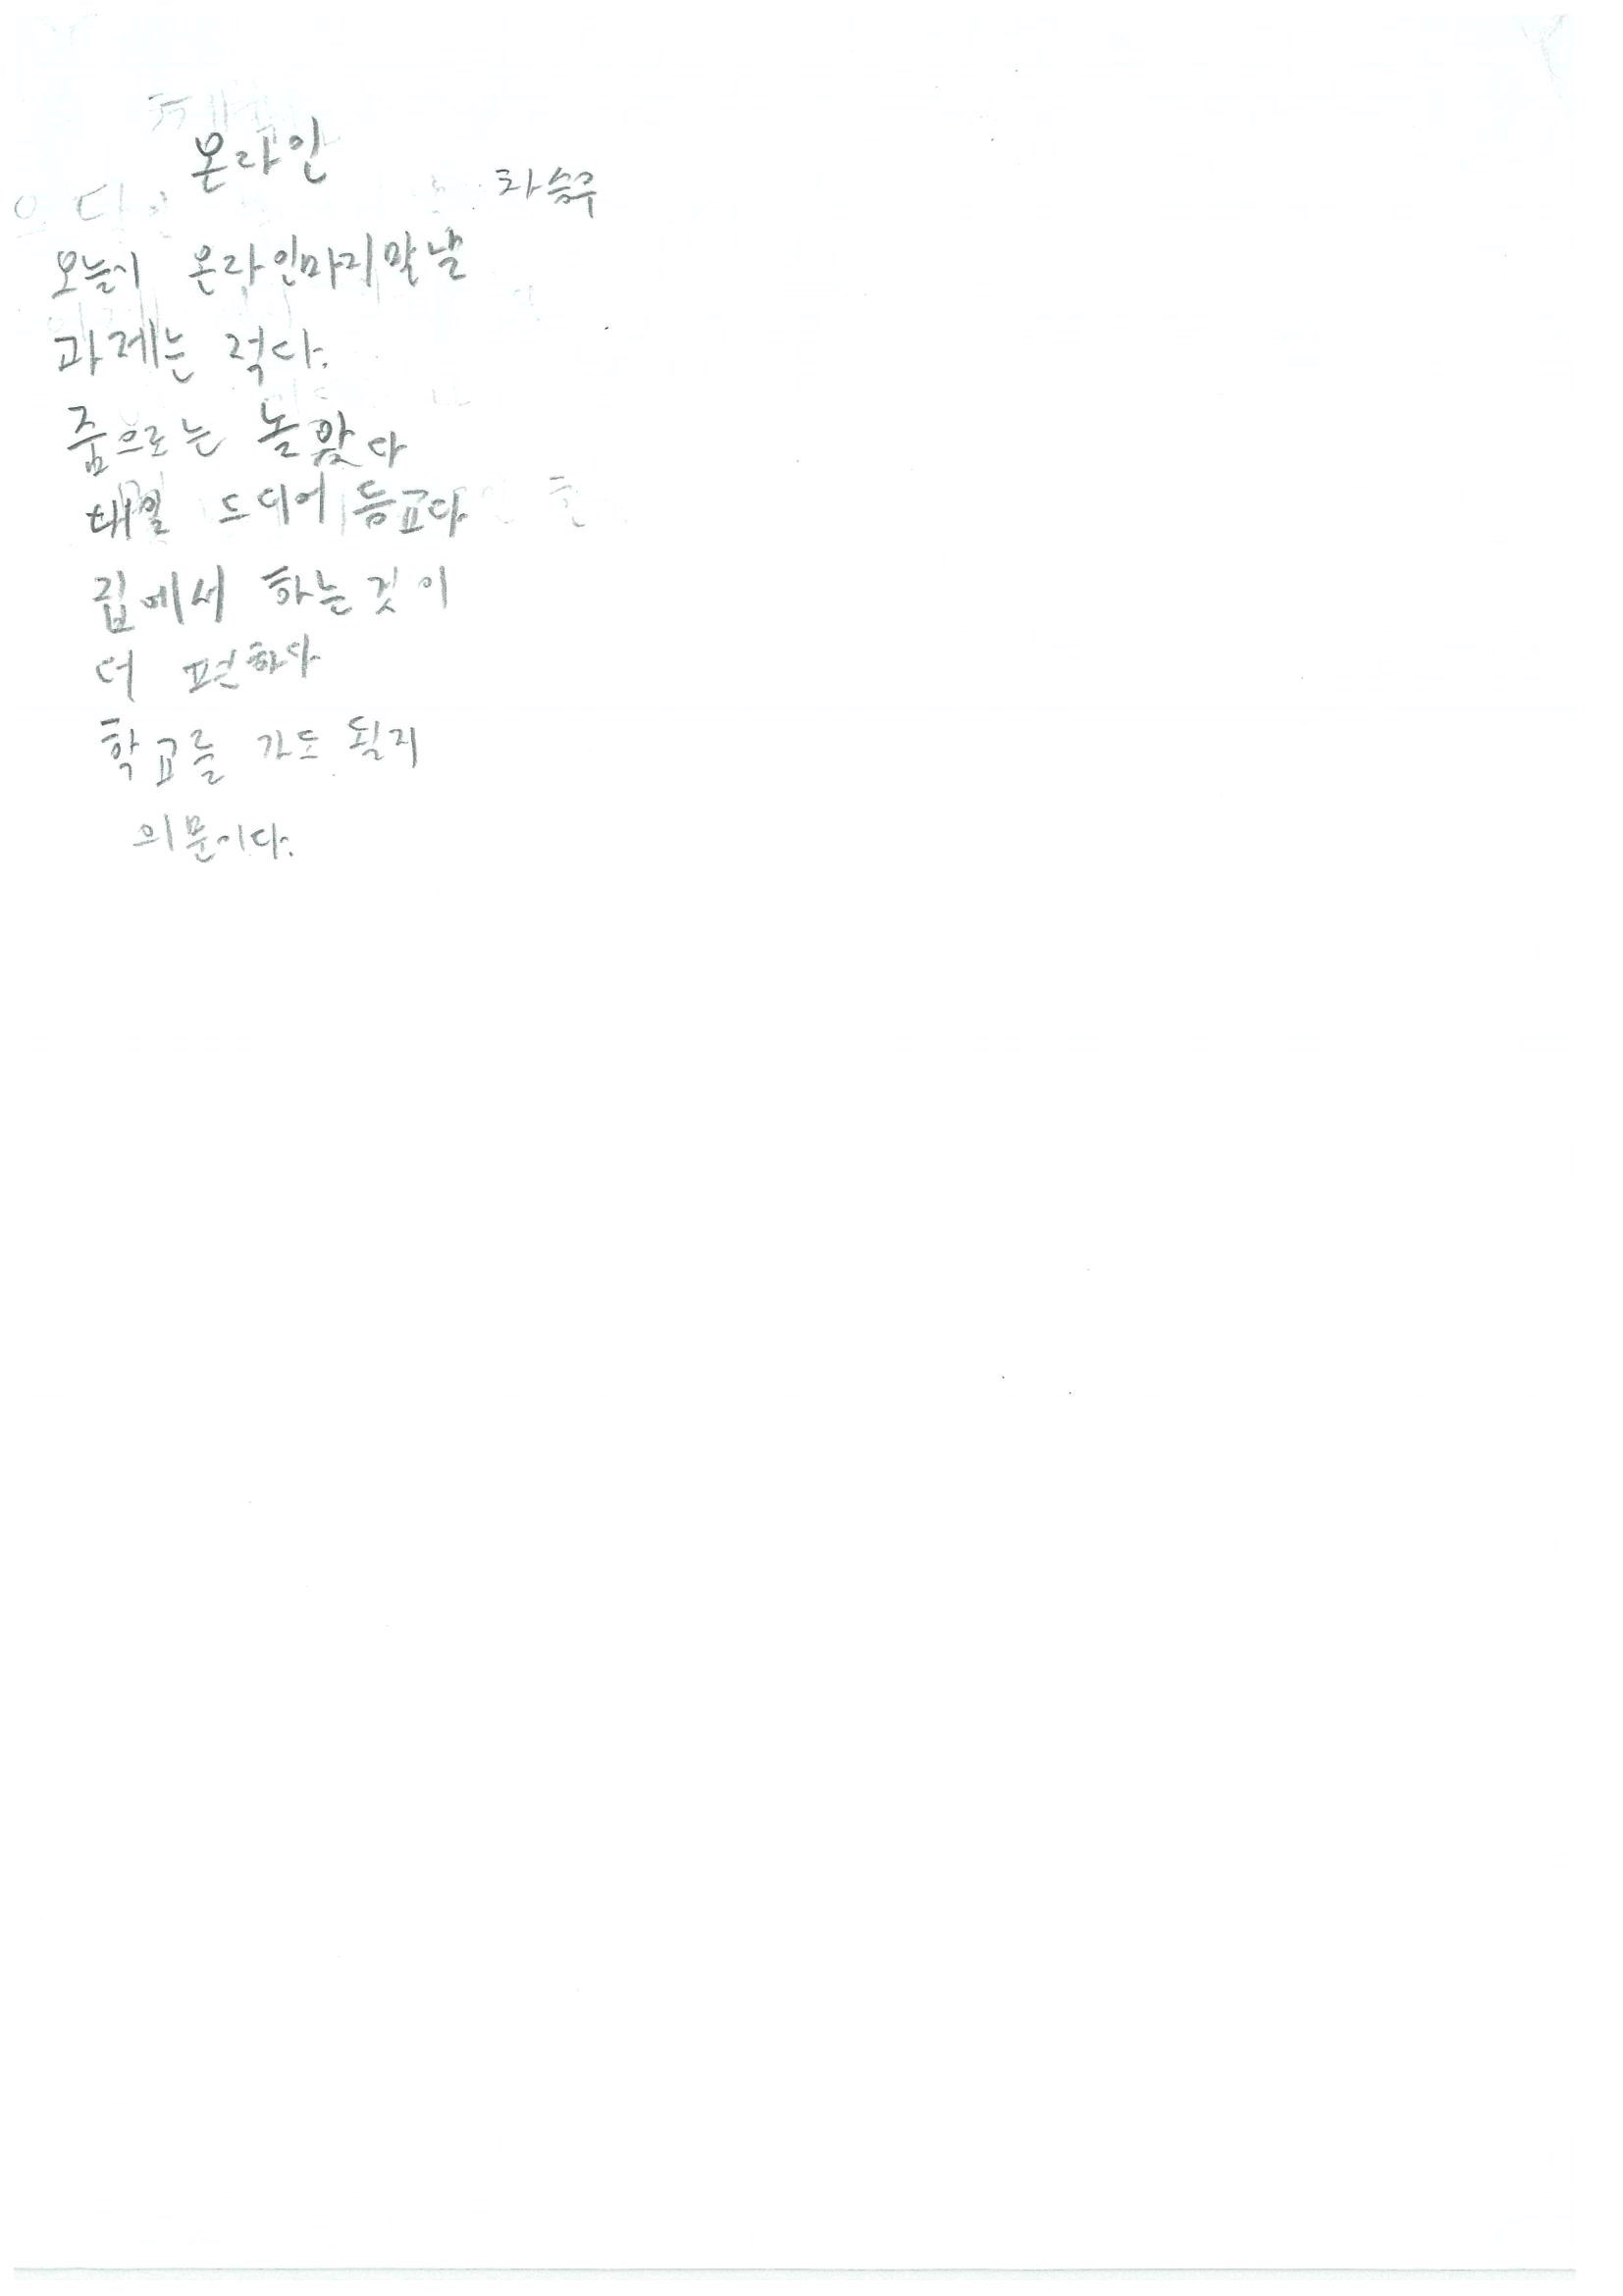 온라인
차승주
오늘이 온라인마지막날
과제는 적다.
줌으로는 놀았다
내일 드디어 등교다
집에서 하는것이
더 편하다
학교를 가도 될지
의문이다.